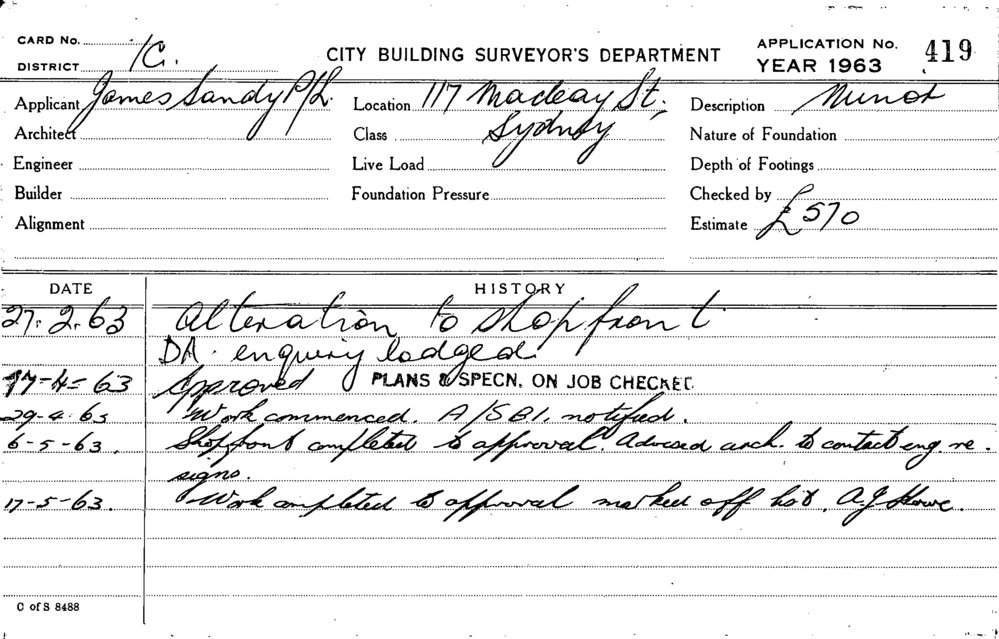 CARD No.
DISTRICT 1C.
CITY BUILDING SURVEYOR'S DEPARTMENT
APPLICATION No. 419
YEAR 1963
Applicant James Sandy P/L. Location 117 Macleay St., Description Minor
Architect Class Sydney Nature of Foundation
Engineer Live Load Depth of Footings
Builder Foundation Pressure Checked by
Alignment Estimate £570
DATE HISTORY
27.2.63 Alteration to shopfront
DA. enquiry lodged
17-4-63 Approved PLANS & SPECN, ON JOB CHECKED
29-4-63 Work commenced. A/SBI. notified.
6-5-63. Shopfront completed to approval. Advised arch. to contact eng. re.
signs.
17-5-63. Work completed to approval marked off list. A.J. Howe.
C of S 8488